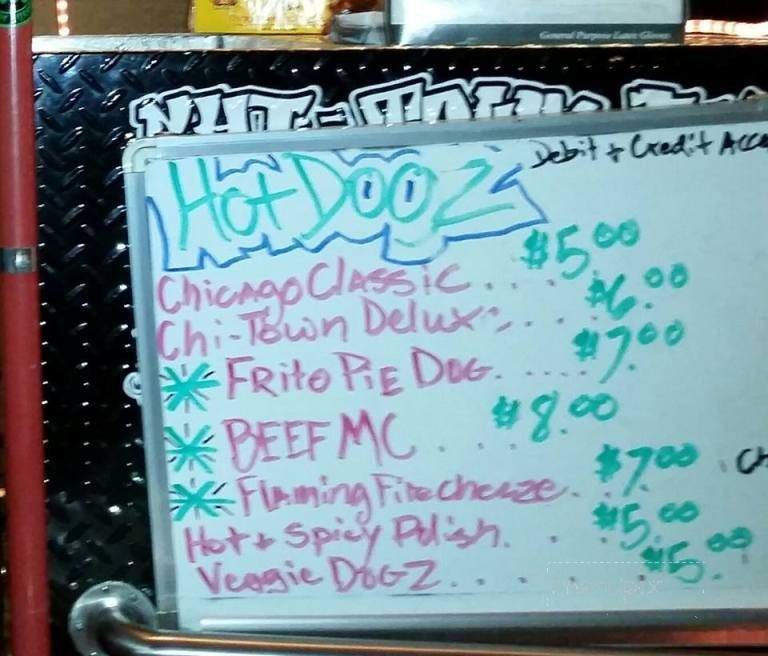 General Purpose Latex Gloves
Debit + Credit Acce
Hot DOGZ
Chicago Classic . . . . $5.00
Chi-Town Delux . . . $6.00
FRito PiE DOG. . . . . $7.00
BEEF MC . . . $8.00
Flaming Firecheeze . . . $7.00
Ch
Hot + Spicy Polish. . . $5.00
Veggie DOGZ . . . . $5.00